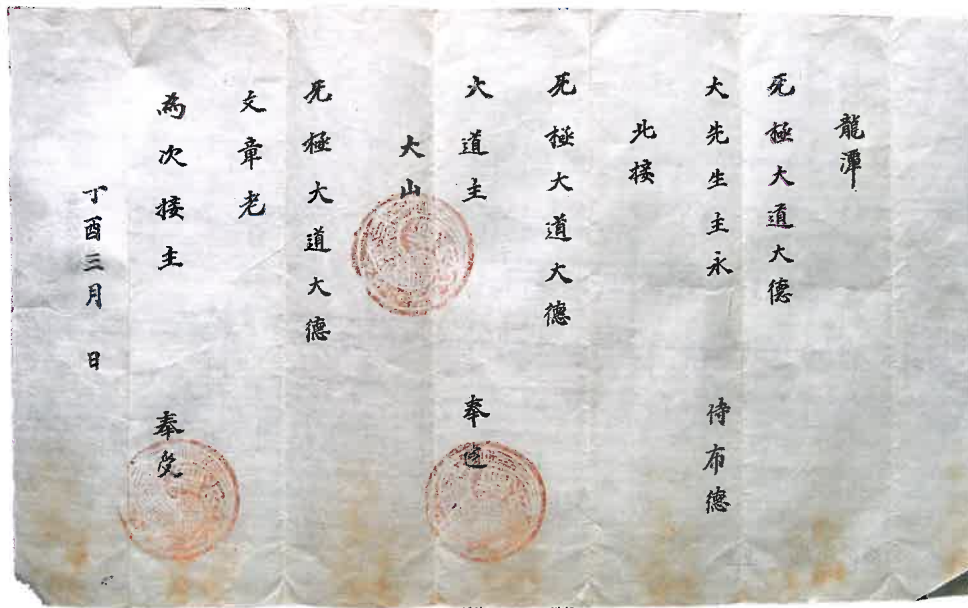 龍潭
无極大道大德
大先生主永 侍布德
北接
无極大道大德
次道主 奉
大山
无極大道大德
文章老
為次接主 奉受
丁酉三月 日